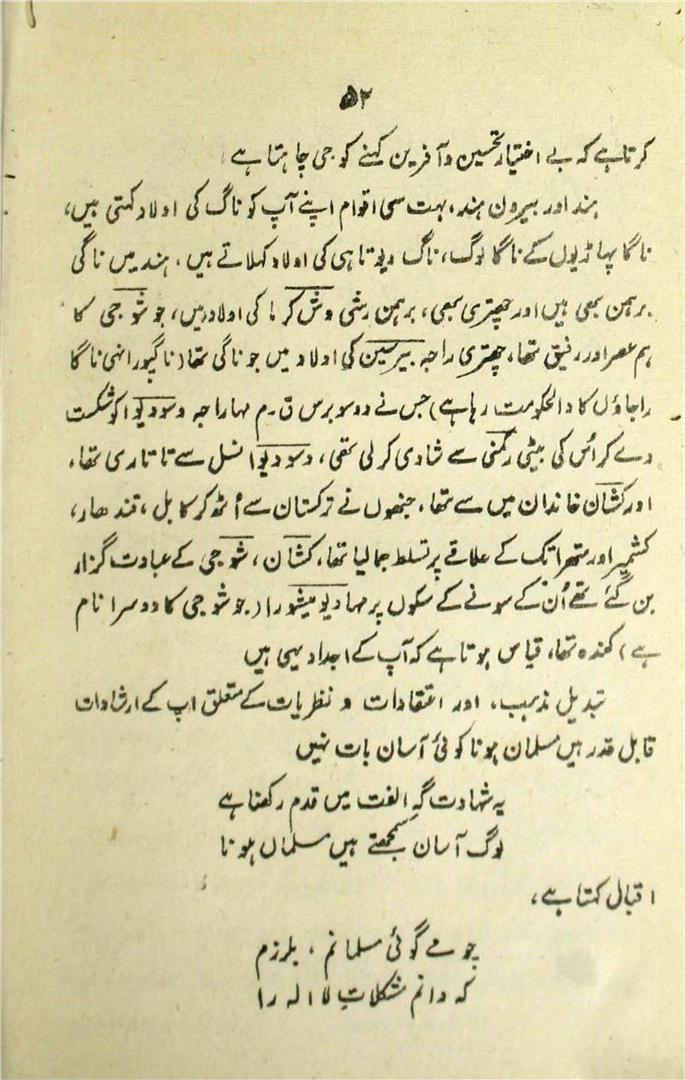 ۵۲
کرتا ہے کہ بے اختیار تحسین و آفرین کہنے کو جی چاہتا ہے
ہند اور بیرون ہند، بہت سی اقوام اپنے آپ کو ناگ کی اولاد کہتی ہیں،
ناگا پہاڑیوں کے ناگا لوگ، ناگ دیوتا ہی کی اولاد کہلاتے ہیں، ہند میں ناگی
برہمن بھی ہیں اور چھتری بھی، برہمن رشی وش کرما کی اولاد ہیں، جو شوجی کا
ہم عصر اور رفیق تھا، چھتری راجہ بیرسین کی اولاد میں جو ناگی تھا (ناگپور انہی ناگا
راجاؤں کا دالحکومت رہا ہے) جس نے دو سو برس ق۔م مہاراجہ وسودیوا کو شکست
دے کر اُس کی بیٹی رکمنی سے شادی کر لی تھی، وسودیوا نسل سے تاتاری تھا،
اور کشان خاندان میں سے تھا، جنھوں نے ترکستان سے اُٹھ کر کابل، قندھار،
کشمیر اور متھرا تک کے علاقے پر تسلط جما لیا تھا، کشان، شوجی کے عبادت گزار
بن گئے تھے اُن کے سونے کے سکوں پر مہادیو میشورا (جو شوجی کا دوسرا نام
ہے) کندہ تھا، قیاس ہوتا ہے کہ آپ کے اجداد یہی ہیں
تبدیل مذہب، اور اعتقادات و نظریات کے متعلق اپ کے ارشادات
قابل قدر ہیں مسلمان ہونا کوئی آسان بات نہیں
یہ شہادت گہِ الفت میں قدم رکھنا ہے
لوگ آسان سمجھتے ہیں مسلماں ہونا
اقبال کہتا ہے،
چو مے گوئی مسلمانم، بلرزم
کہ دانم مشکلاتِ لا الہ را